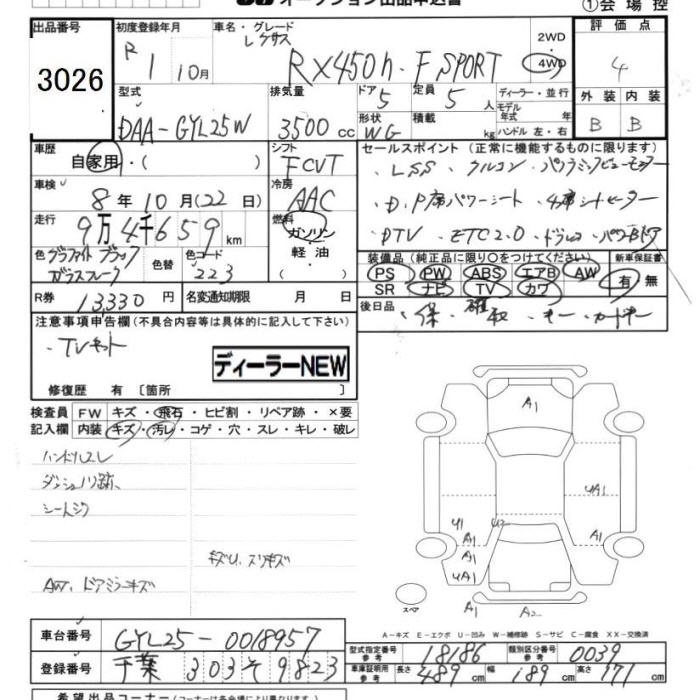 オークション出品申込書 ①会場控
出品番号 初度登録年月 車名・グレード レクサス 2WD 評価点
3026 R 1 10月 RX450h・F SPORT 4WD 4
型式 排気量 ドア 5 定員 5人 ディーラー・並行 外装 内装
DAA-GYL25W 3500cc 形状 WG 積載 kg モデル年式 年式 ハンドル 左・右 B B
車歴 自家用・( ) シフト FCVT セールスポイント (正常に機能するものに限ります)
・LSS ・クルコン ・パノラミックビューモニター
車検 8年10月(22日) 冷房 AAC ・D.P席パワーシート ・4席シートヒーター
走行 9万4千659km 燃料 ガソリン 軽油 DTV ・ETC2.0 ・ドラレコ ・パワーBドア
色 グラファイトブラックガラスフレーク 色替 色コード 223 装備品 (純正品に限り○をつけてください) 新車保証書
PS PW ABS エアB AW 有・無
SR ナビ TV カワ
R券 13330円 名変通知期限 月 日 後日品 ・保 ・確 ・取 ・キー ・カードキー
注意事項申告欄 (不具合内容等は具体的に記入して下さい)
・TVキット
ディーラーNEW
修復歴 有 [箇所 ]
検査員記入欄 FW キズ・飛石・ヒビ割・リペア跡・×要
内装 キズ・汚レ・コゲ・穴・スレ・キレ・破レ
ハンドルスレ
ダッシュノリ跡、
シートシワ
キズU、スリキズ
AW、ドアミラーキズ
A1
UA1
U1 U2
A1 A1
A1
UA1
A1 A2
スペア
A-キズ E-エクボ U-凹み W-補修跡 S-サビ C-腐食 XX-交換済
車台番号 GYL25-0018957 型式指定番号 参考 18186 類別区分番号 参考 0039
登録番号 千葉 303 そ 9823 車庫証明用 参考 長さ 489cm 幅 189cm 高さ 171cm
希望出品コーナー